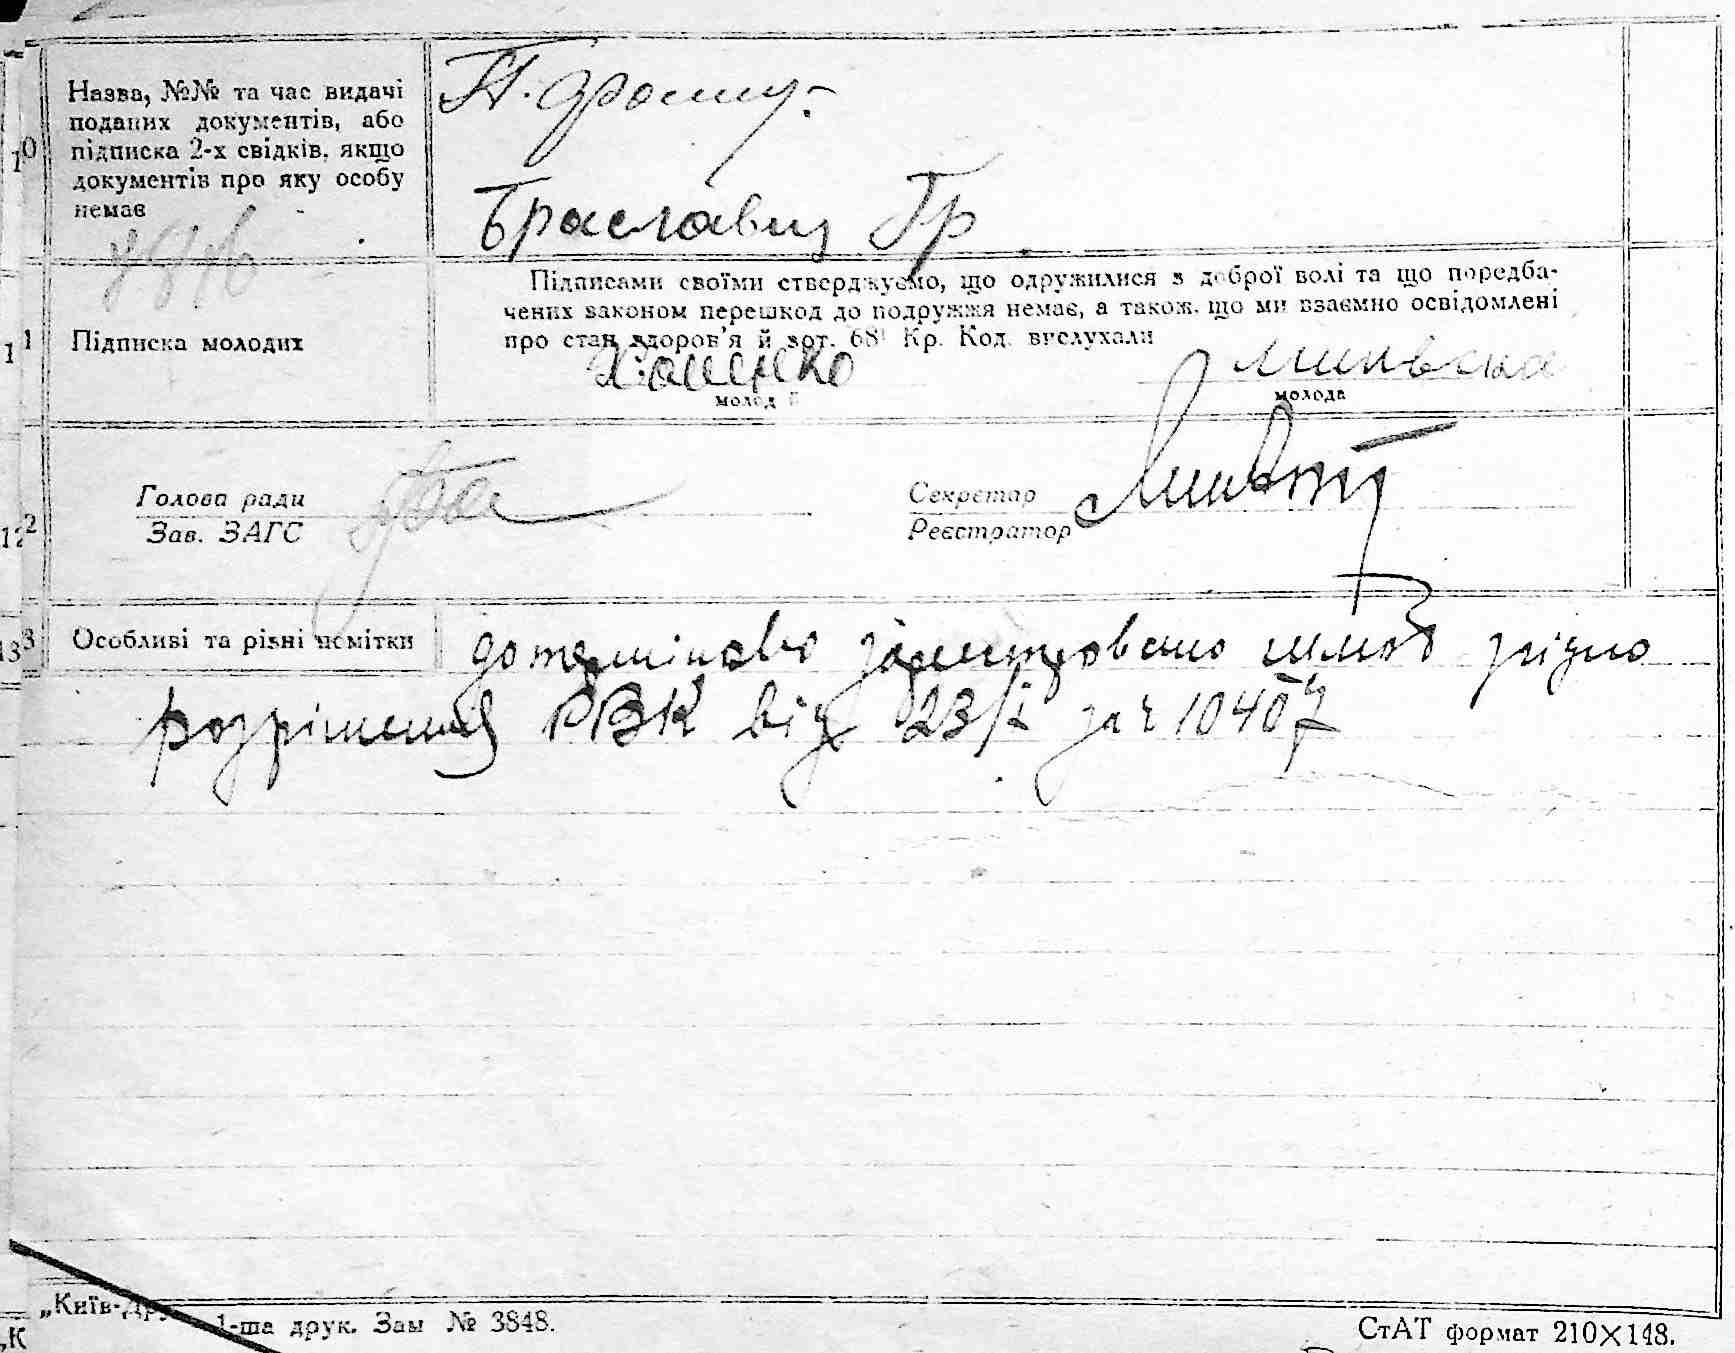 10 Назва, №№ та час видачі
поданих документів, або
підписка 2-х свідків, якщо
документів про яку особу
немає
Браславец Гр
Підписами своїми стверджуємо, що одружилися з доброї волі та що передба-
чених законом перешкод до подружжя немає, а також, що ми взаємно освідомлені
про стан здоров'я й зот. 68¹ Кр. Код. вислухали
11 Підписка молодих
молодий
молода
Голова ради
Секретар
12
Зав. ЗАГС
Реєстратор
13 Особливі та різні помітки
дотерміново зареєстровано шлюб згідно
розрішення РВК від 23/I за ч 10407
„Київ-Друк" 1-ша друк. Зам № 3848.
СтАТ формат 210×148.